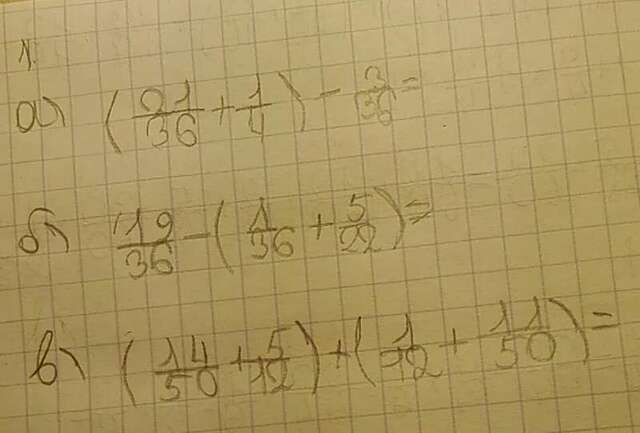 N.
а) (21/36 + 1/4) - 2/36 =
б) 19/36 - (1/36 + 5/22) =
в) (14/50 + 5/12) + (1/12 + 11/50) =